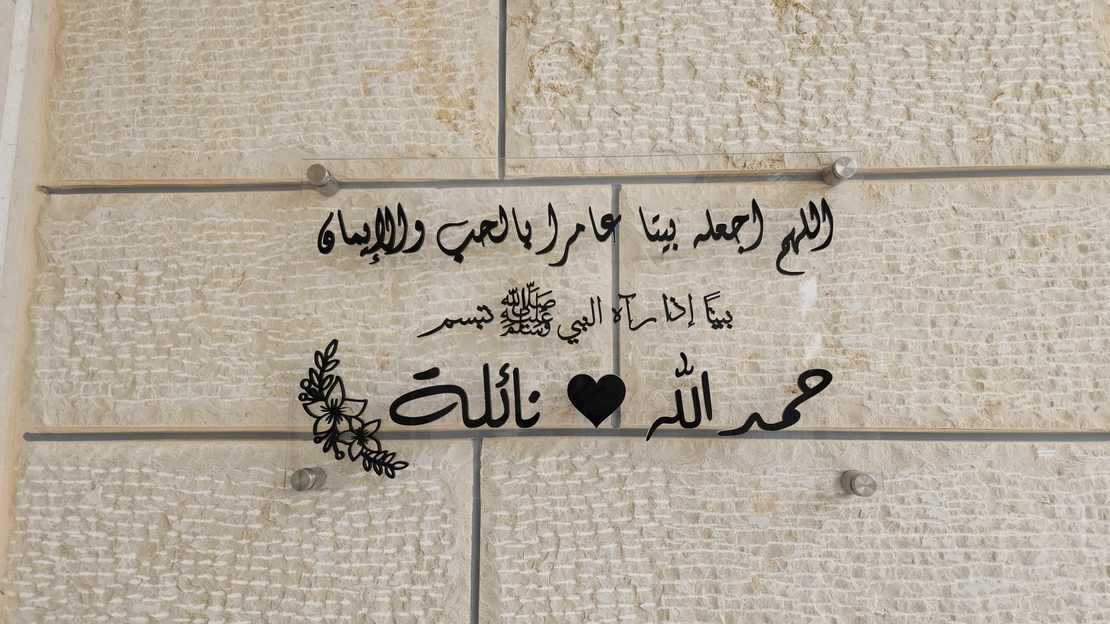 اللهم اجعله بيتا عامرا بالحب والإيمان
بيتًا إذا رآه النبي ﷺ تبسم
حمد الله ♥ نائلة